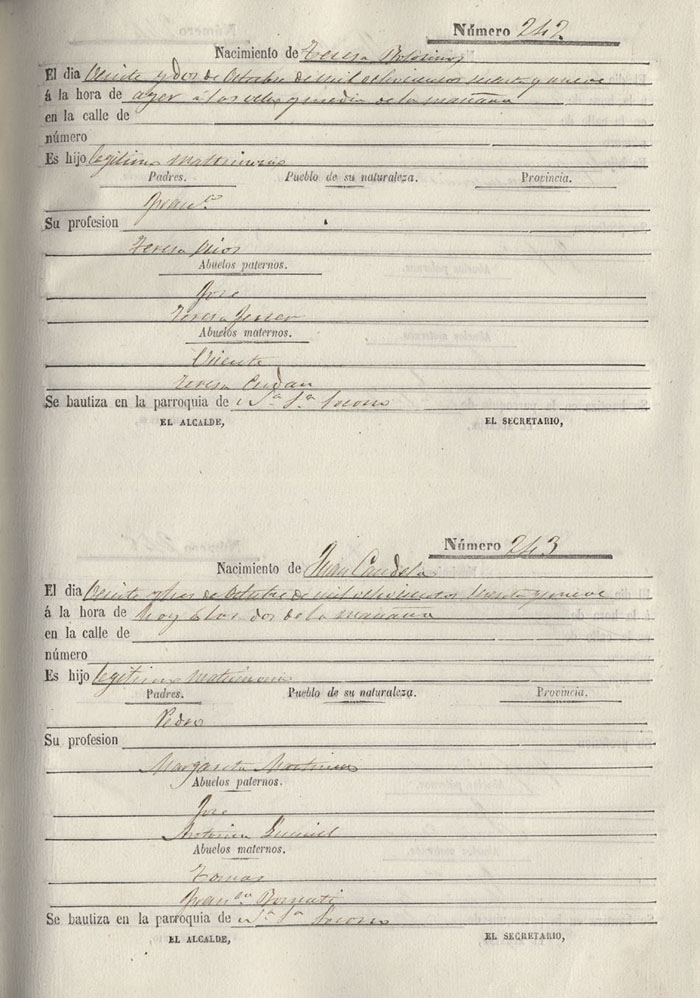 Número 242
Nacimiento de Teresa
El dia Veinte y dos de Octubre de mil ochocientos sesenta y nueve
á la hora de ayer á las ocho y media de la mañana
en la calle de
número
Es hijo legitimo matrimonio
Padres. Pueblo de su naturaleza. Provincia.
Fran.co
Su profesion
Teresa Rios
Abuelos paternos.
Jose
Teresa
Abuelos maternos.
Vicente
Teresa
Se bautiza en la parroquia de N.a S.a Socorro
EL ALCALDE, EL SECRETARIO,
Número 243
Nacimiento de Juan Candela
El dia Veinte y tres de Octubre de mil ochocientos sesenta y nueve
á la hora de hoy á las dos de la mañana
en la calle de
número
Es hijo legitimo matrimonio
Padres. Pueblo de su naturaleza. Provincia.
Pedro
Su profesion
Margarita Martinez
Abuelos paternos.
Jose
Antonia
Abuelos maternos.
Tomas
Fran.ca
Se bautiza en la parroquia de N.a S.a Socorro
EL ALCALDE, EL SECRETARIO,